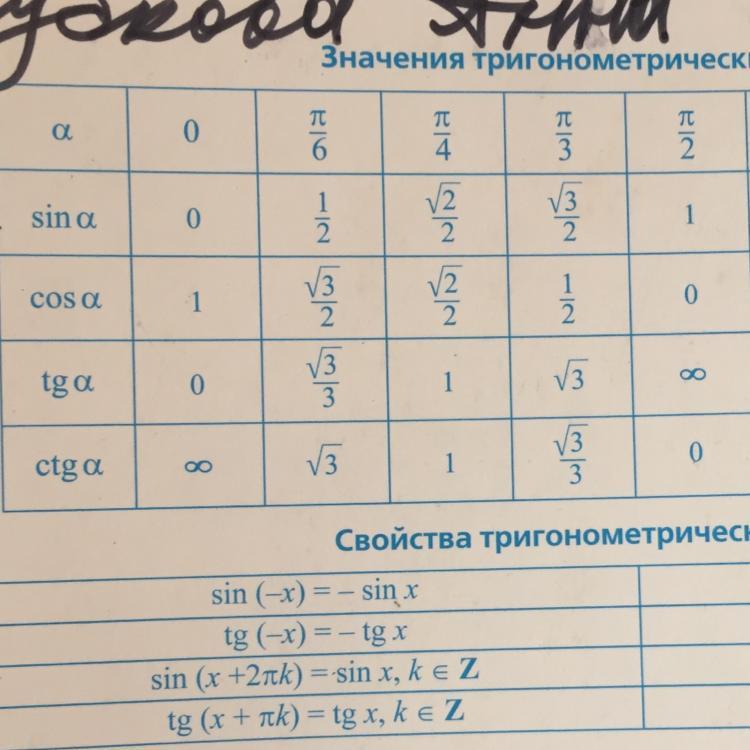 Значения тригонометрическ
α 0 π/6 π/4 π/3 π/2
sin α 0 1/2 √2/2 √3/2 1
cos α 1 √3/2 √2/2 1/2 0
tg α 0 √3/3 1 √3 ∞
ctg α ∞ √3 1 √3/3 0
Свойства тригонометрическ
sin (–x) = – sin x
tg (–x) = – tg x
sin (x +2πk) = sin x, k ∈ Z
tg (x + πk) = tg x, k ∈ Z